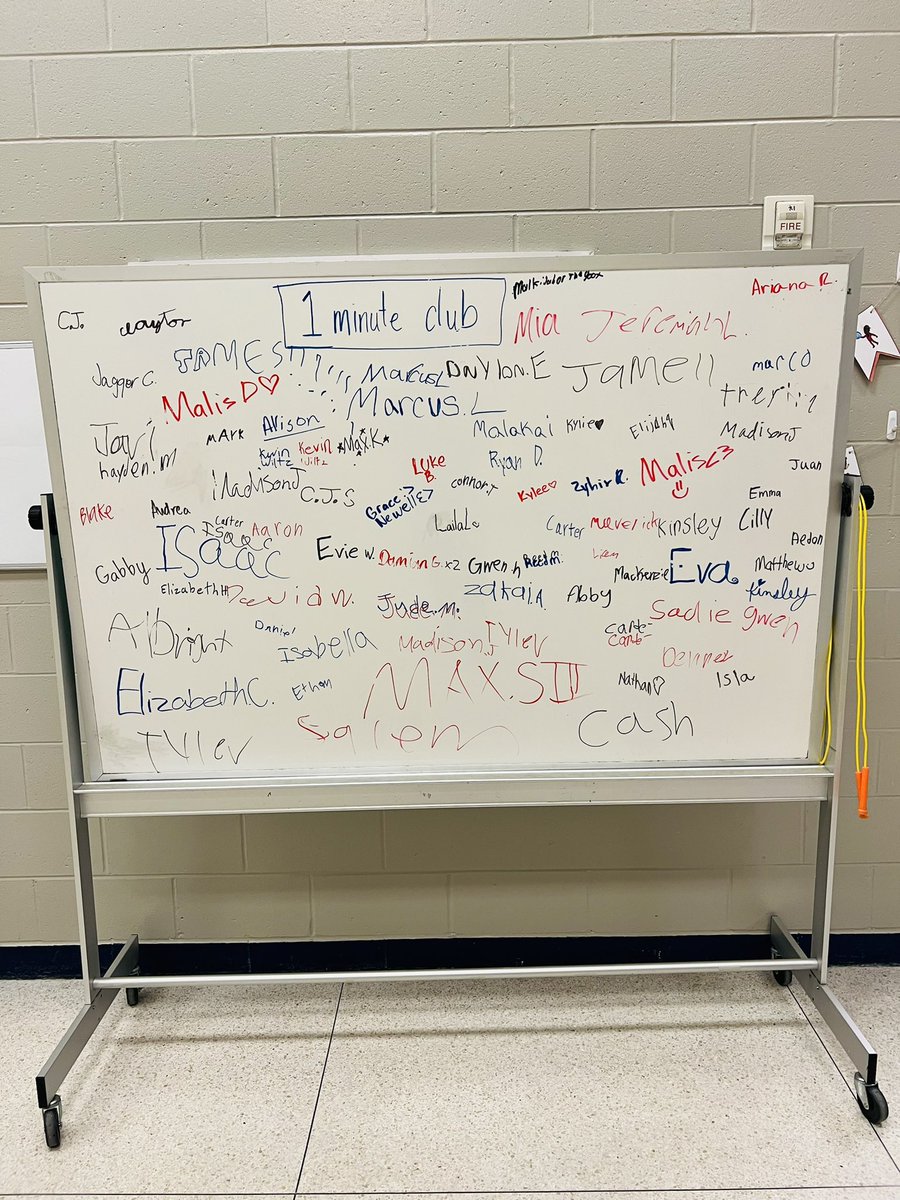 FIRE
Ariana R.
C.J.
1 minute club
Mia
Jeremiah L.
JAMES!!!
Jaggor C.
Marcus L
DayLon.E
JAMEll
marco
Malis D♡
Marcus.L
Javi
mark
Alison
*Max K*
Malakai
kylie♥
Elijah
Madison J
hayden.m
Kevin
Wiltz
Kevin
Wiltz
Luke
B.
Ryan D.
Malis<3
Juan
Madison J
C.J.S
connor.T
Kylee♡
Zyhir R.
Emma
Blake
Andrea
Grace :>
Newell :>
Laila L.
Carter
maverick
Kinsley
Cilly
Carter
Isaac
Aaron
ISaac
Evie w.
Damian G. x2
Gwen h
Reed M.
Liam
Aedon
Gabby
Mackenzie
Eva
Matthew w
Elizabeth H
David W.
Jude.M.
Zakai.A
Abby
Kinsley
Albright
Daniel
Isabella
Madison J
Tyler
Sadie Gwen
Elizabeth C.
Ethan
MAX.S III
Nathan♡
Isla
Tyler
Salem
Cash